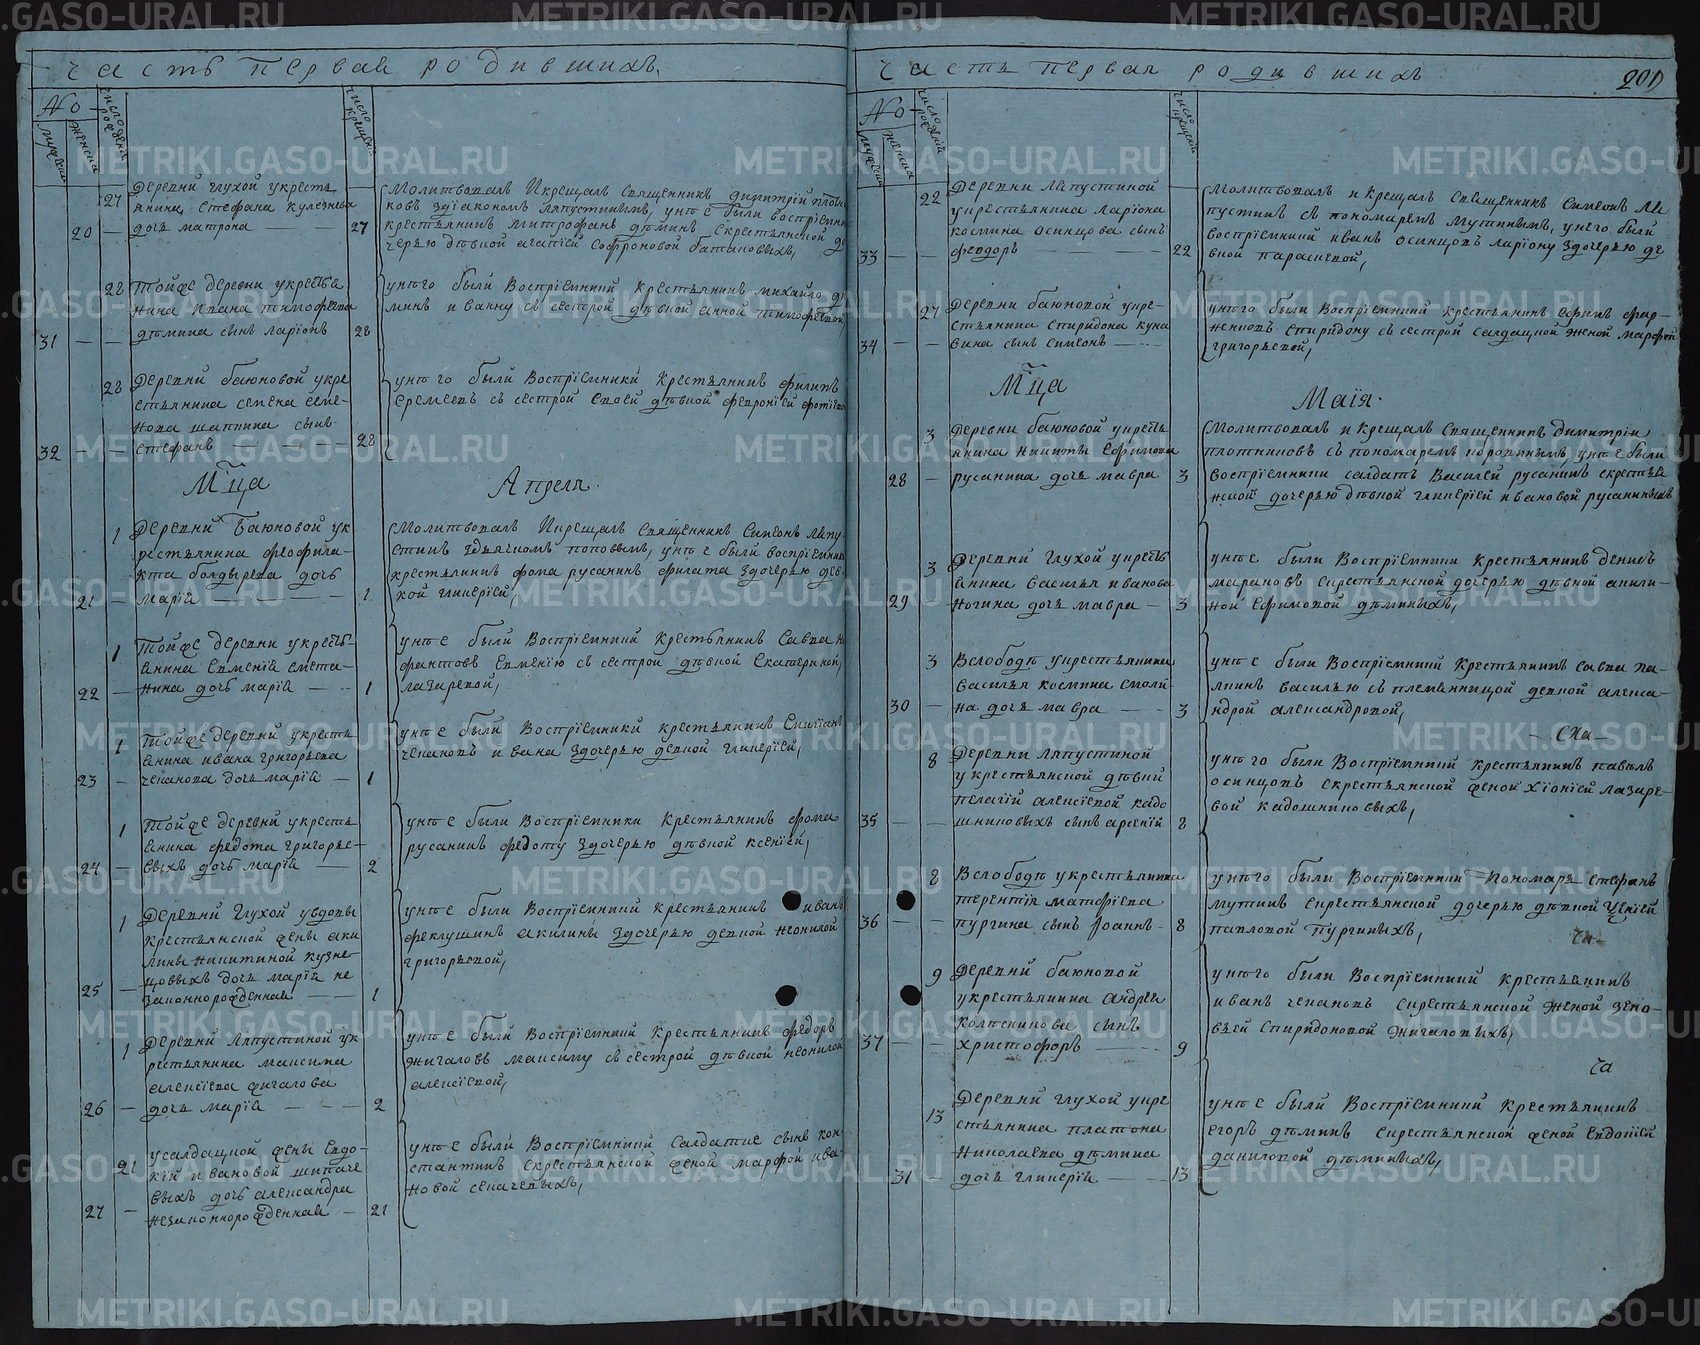 часть первая родившихъ
No
мужеска
женска
число рожденія
число крещенія
27 деревни глухой укресть
янина стефана кулезнева
20 — дочь матрона — — 27
Молитвовалъ Икрещалъ Священникъ димитрій
ковъ здіакономъ ляпустинымъ, унъ е были воспріемни
крестьянинъ митрофанъ дѣминъ скрестьянской до
черью дѣвкой агапіей Софроновой батиновыхъ,
28 тойже деревни укрестья
нина Ивана тимофеева
31 — — дѣмина сынъ ларіонъ 28
унъго были Воспріемники крестьянинъ михайло дѣ
минъ ивану съ сестрой дѣвкой анной тимофеевой
28 деревни баюновой укре
стьянина семена семе-
нова шапкина сынъ
32 — — стефанъ — — — 28
унъго были Воспріемники крестьянинъ филипъ
еремеевъ съ сестрой своей дѣвкой февроніей
Мца Апреля.
1 деревни баюновой ук
рестьянина феофила-
кта болдырева дочь
21 — марія — — — 1
Молитвовалъ Икрещалъ Священникъ Симеонъ ляпу-
стинъ здьячкомъ поповымъ, унъ е были воспріемники
крестьянинъ фома русанинъ филата здочерью дев-
кой гликеріей,
1 тойже деревни укресть-
янина Евменія смета-
22 — нина дочь марія — — 1
унъ е были Воспріемники крестьянинъ Савва
фантовъ Евменію съ сестрои дѣвкой Екатериной
лазаревой,
1 тойже деревни укресть
янина ивана григорьева
23 — чепанова дочь марія — 1
унъ е были Воспріемники крестьянинъ
чепановъ ивана здочерью девкой гликеріей,
1 тойже деревни укресть
янина федота григорье-
24 — выхъ дочь марія — 2
унъ е были Воспріемники крестьянинъ фома
русанинъ федоту здочерью дѣвкой ксеніей,
1 деревни глухой увдовы
крестьянской жены аки
лины никитиной кузне
цовыхъ дочь марія не
25 — законнорожденная — — 1
унъ е были Воспріемники крестьянинъ иванъ
феклушинъ акилины здочерью девкой неонилой
григорьевой,
1 деревни ляпустиной ук
рестьянина максима
алексіева жигалова
26 — дочь марія — — — 2
унъ е были Воспріемники крестьянинъ федоръ
жигаловъ максиму съ сестрой дѣвкой неонилой
алексіевой,
21 усалдацкой жены Евдо-
кіи ивановой шипаче
выхъ дочь александра
27 — незаконнорожденная — 21
унъ е были Воспріемники салдатке сынъ кон-
стантинъ скрестьянской женой марфой ива-
новой сепачевыхъ,
часть первая родившихъ 201
No
мужеска
женска
число рожденій
число крещеній
22 деревни ляпустиной
укрестьянина ларіона
космина осинцова сынъ
33 — — феодоръ — — — 22
Молитвовалъ и крещалъ священникъ Симеонъ ля
пустинъ съ пономаремъ мутинымъ, унего были
воспріемники иванъ осинцовъ ларіону здочерью де
вкой парасковей,
27 деревни баюновой укре-
стьянина спиридона куха
34 — — вина сынъ симеонъ — —
унъго были воспріемники крестьянинъ Ефимъ
женковъ спиридону съ сестрой салдацкой женой марфой
григорьевой,
Мца Маія.
3 деревни баюновой укресть
янина никиты Ефимова
28 — русанина дочь мавра 3
Молитвовалъ и крещалъ священникъ димитріи
плотниковъ съ пономаремъ коровинымъ, унъ е были
воспріемники салдатъ Василей русанинъ скрестья
нской дочерью дѣвкой гликеріей ивановой русаниныхъ
3 деревни глухой укресть
янина василья иванова
29 — ногина дочь мавра — 3
унъ е были Воспріемники крестьянинъ денисъ
марановъ скрестьянской дочерью дѣвкой акили-
ной Ефимовой дѣминыхъ,
3 Вслободѣ укрестьянина
василья космина смоли-
30 — на дочь мавра — — 3
унъ е были Воспріемники крестьянинъ савва па-
лкинъ василью съ племянницой девкой алекса-
ндрой александровой,
8 деревни ляпустиной
укрестьянской дѣвки
пелагіи алексіевой кадо
35 — — шниковыхъ сынъ арсеній 8
унъго были Воспріемники крестьянинъ павелъ
осинцовъ скрестьянской женой хіоніей лазаре-
вой кадошниковыхъ,
8 Вслободѣ укрестьянина
терентія матфѣева
36 — — пургина сынъ Іоаннъ — 8
унъго были Воспріемники пономаръ стефанъ
мутинъ скрестьянской дочерью дѣвкой
павловой пургиныхъ,
9 деревни баюновой
укрестьянина андрея
колпскикова сынъ
37 — — христофоръ — — 9
унъго были Воспріемники крестьянинъ
иванъ чепановъ скрестьянской женой зено-
віей спиридоновой жигаловыхъ,
13 деревни глухой укре
стьянина платона
николаева дѣмина
31 — дочь гликерія — — 13
унъ е были Воспріемники крестьянинъ
егоръ дѣминъ скрестьянской женой Евдокіей
даниловой дѣминыхъ,
METRIKI.GASO-URAL.RU